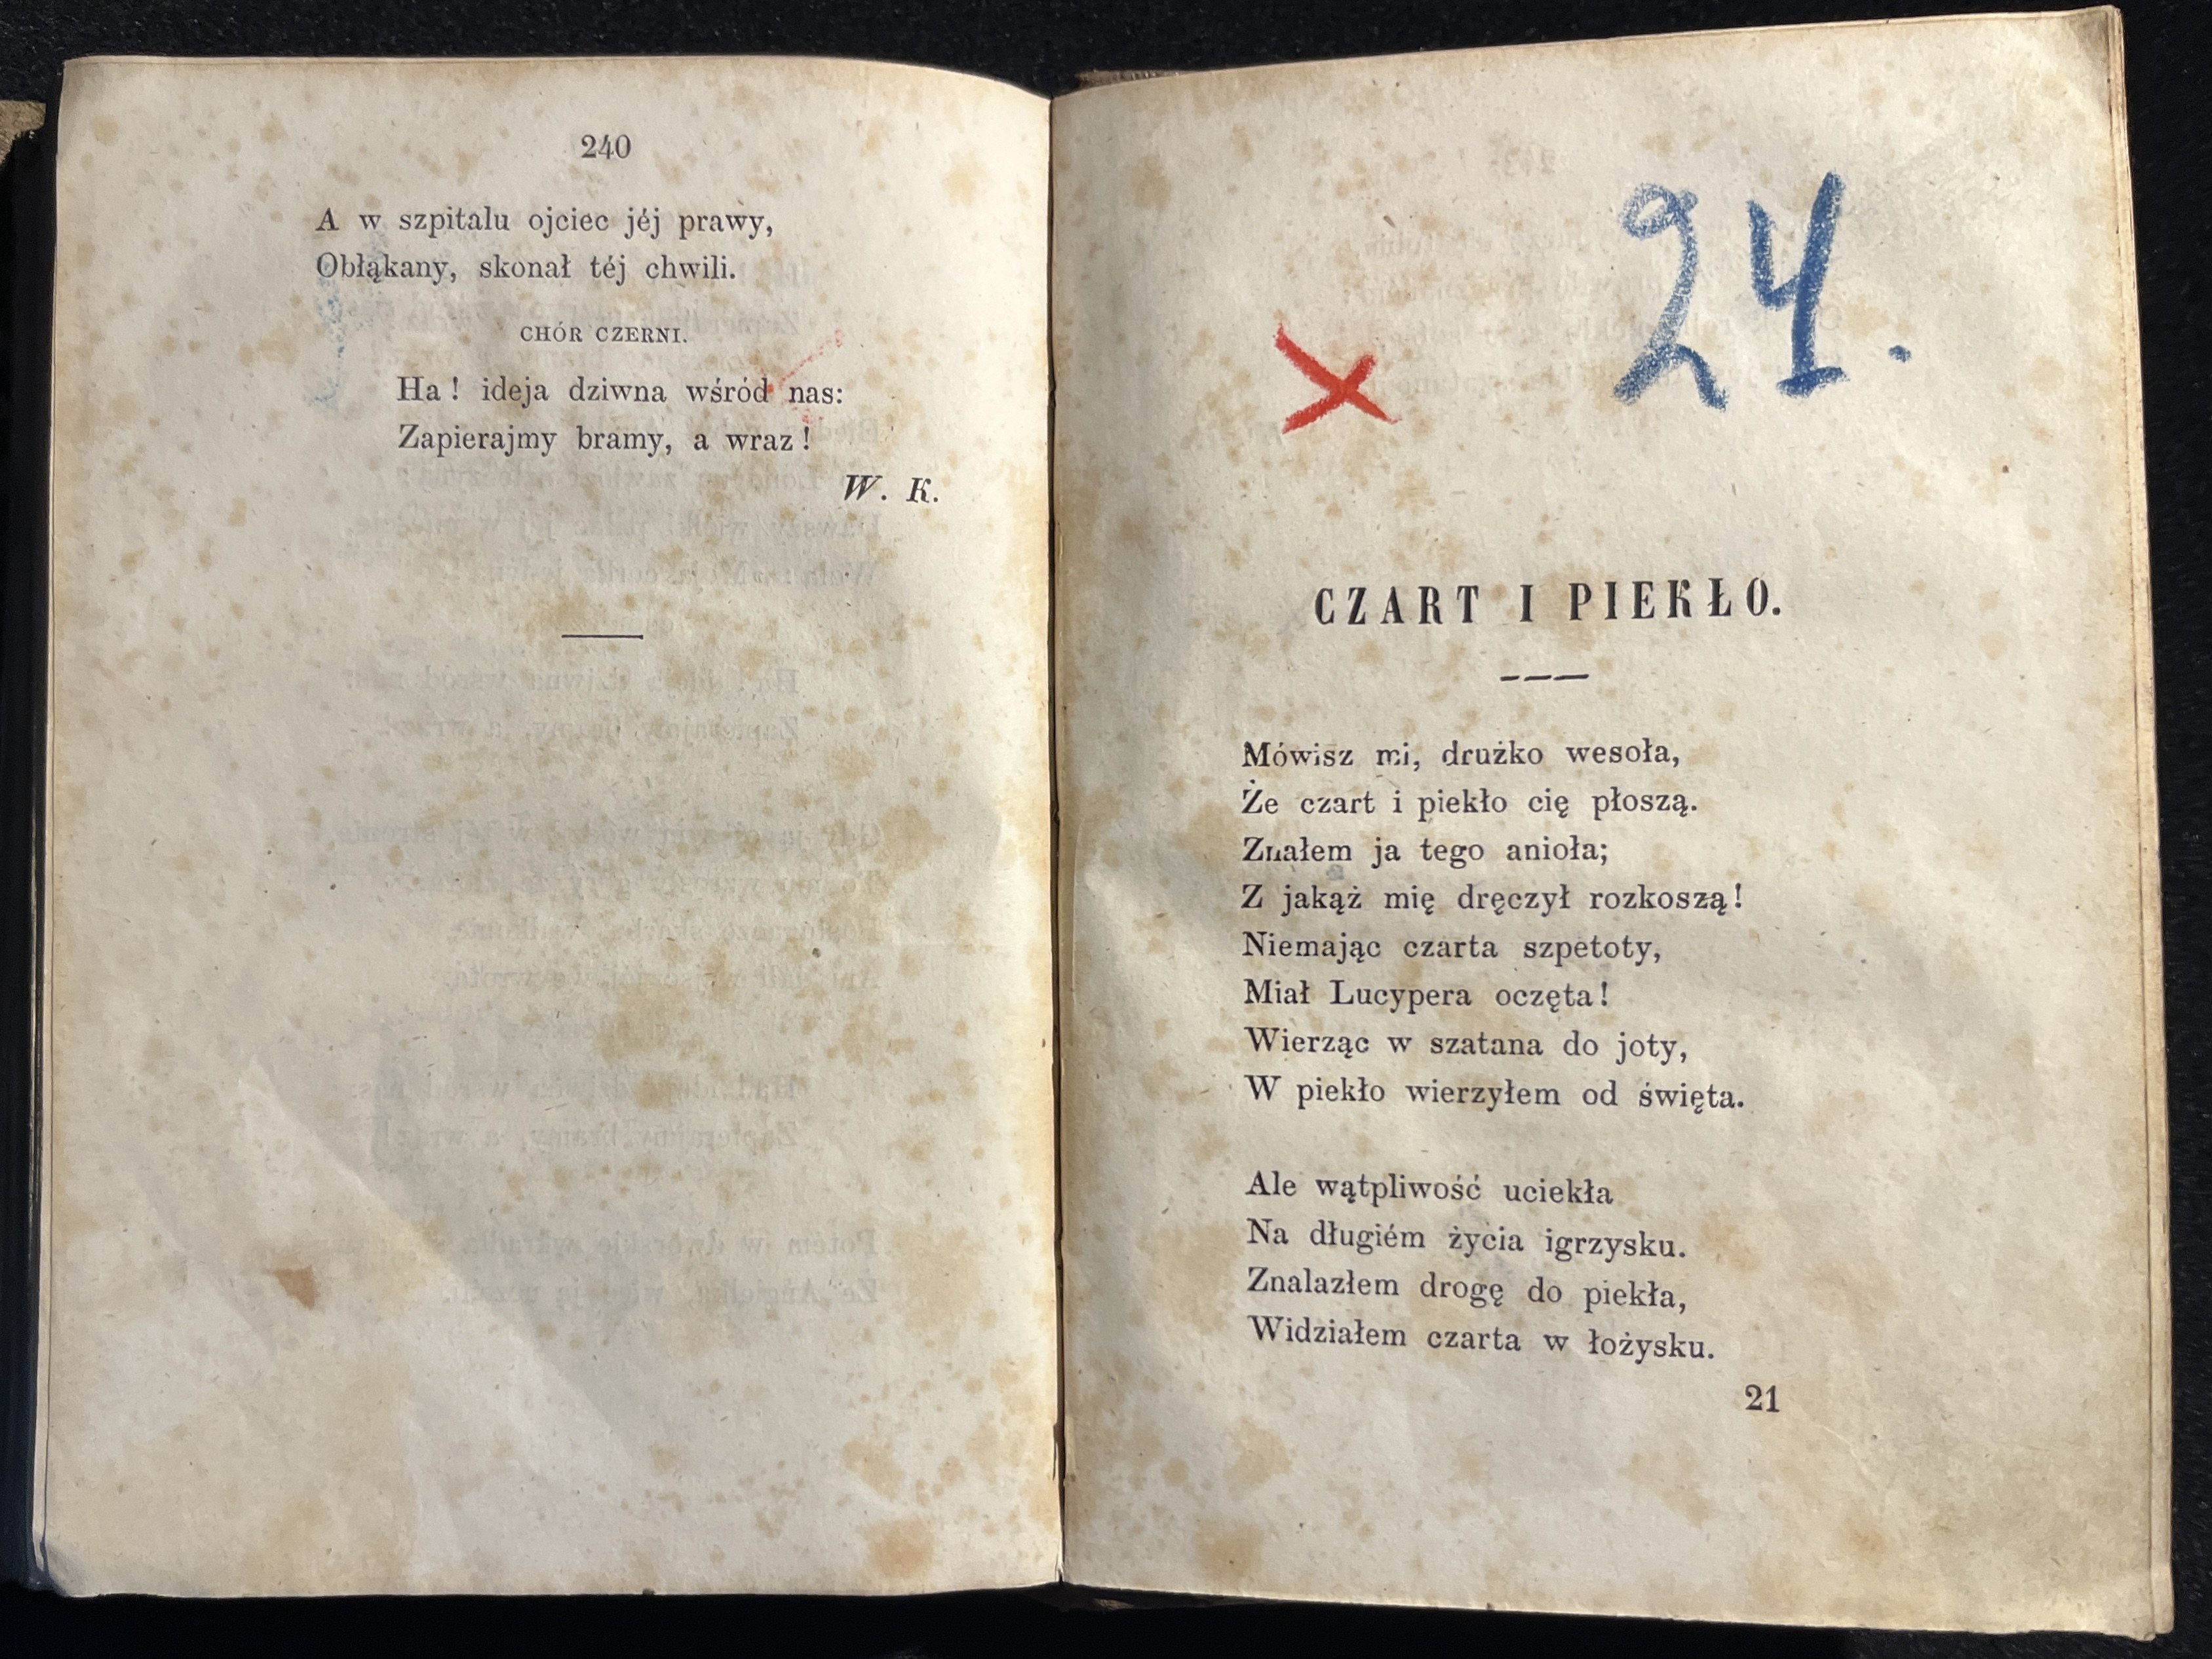 240
A w szpitalu ojciec jéj prawy,
Obłąkany, skonał téj chwili.
CHÓR CZERNI.
Ha! ideja dziwna wśród nas:
Zapierajmy bramy, a wraz!
W. K.
24.
CZART I PIEKŁO.
Mówisz mi, drużko wesoła,
Że czart i piekło cię płoszą.
Znałem ja tego anioła;
Z jakąż mię dręczył rozkoszą!
Niemając czarta szpetoty,
Miał Lucypera oczęta!
Wierząc w szatana do joty,
W piekło wierzyłem od święta.
Ale wątpliwość uciekła
Na długiém życia igrzysku.
Znalazłem drogę do piekła,
Widziałem czarta w łożysku.
21